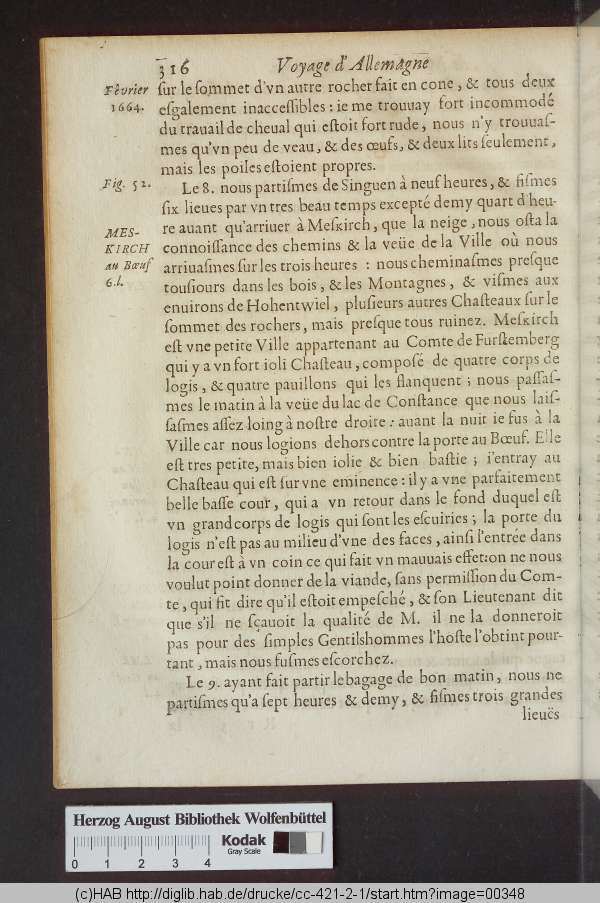 316 Voyage d'Allemagne
Février
1664.
ſur le ſommet d'vn autre rocher fait en cone, & tous deux
eſgalement inacceſſibles : ie me trouuay fort incommodé
du trauail de cheual qui eſtoit fort rude, nous n'y trouuaſ-
mes qu'vn peu de veau, & des œufs, & deux lits ſeulement,
mais les poiles eſtoient propres.
Fig. 52.
Le 8. nous partiſmes de Singuen à neuf heures, & fiſmes
ſix lieues par vn tres beau temps excepté demy quart d'heu-
MES-
KIRCH
au Bœuf
6.l.
re auant qu'arriuer à Meſkirch, que la neige, nous oſta la
connoiſſance des chemins & la veüe de la Ville où nous
arriuaſmes ſur les trois heures : nous cheminaſmes preſque
touſiours dans les bois, & les Montagnes, & viſmes aux
enuirons de Hohentwiel, pluſieurs autres Chaſteaux ſur le
ſommet des rochers, mais preſque tous ruinez. Meſkirch
eſt vne petite Ville appartenant au Comte de Furſtemberg
qui y a vn fort ioli Chaſteau, compoſé de quatre corps de
logis, & quatre pauillons qui les flanquent ; nous paſſaſ-
mes le matin à la veüe du lac de Conſtance que nous laiſ-
ſaſmes aſſez loing à noſtre droite : auant la nuit ie fus à la
Ville car nous logions dehors contre la porte au Bœuf. Elle
eſt tres petite, mais bien iolie & bien baſtie ; i'entray au
Chaſteau qui eſt ſur vne eminence : il y a vne parfaitement
belle baſſe cour, qui a vn retour dans le fond duquel eſt
vn grand corps de logis qui ſont les eſcuiries ; la porte du
logis n'eſt pas au milieu d'vne des faces, ainſi l'entrée dans
la cour eſt à vn coin ce qui fait vn mauuais effet:on ne nous
voulut point donner de la viande, ſans permiſſion du Com-
te, qui fit dire qu'il eſtoit empeſché, & ſon Lieutenant dit
que s'il ne ſçauoit la qualité de M. il ne la donneroit
pas pour des ſimples Gentilshommes l'hoſte l'obtint pour-
tant, mais nous fuſmes eſcorchez.
Le 9. ayant fait partir le bagage de bon matin, nous ne
partiſmes qu'a ſept heures & demy, & fiſmes trois grandes
lieuës
Herzog August Bibliothek Wolfenbüttel
Kodak
Gray Scale
0 1 2 3 4
(c)HAB http://diglib.hab.de/drucke/cc-421-2-1/start.htm?image=00348